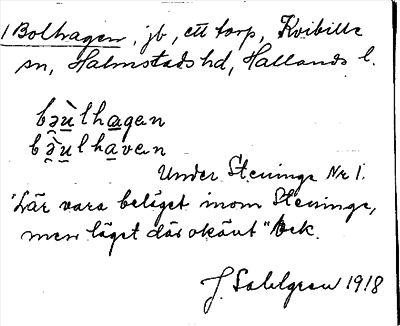 1 Bolhagen, jb, ett torp, Kvibille
sn, Halmstads hd, Hallands l.
bə̀ùlhagen
bə̀ùlhaven
Under Steninge Nr 1.
"Lär vara beläget inom Steninge,
men läget där okänt" Bek.
J. Sahlgren 1918